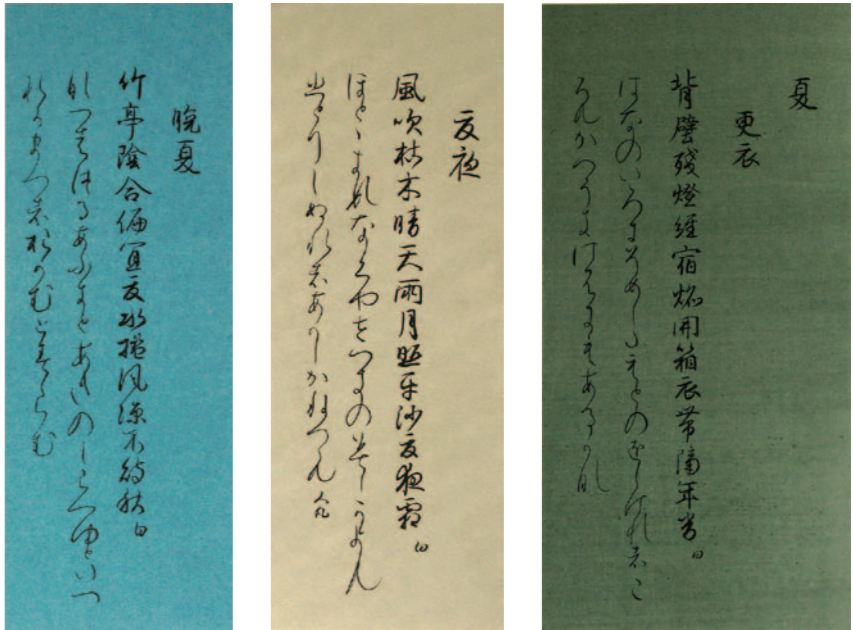 夏
更衣
背壁残燈経宿焔開箱衣帯隔年香 白
はなのいろにそめしたもとのをしけれはこ
ろもかへうきけふにもあるかな
夏夜
風吹枯木晴天雨月照平沙夏夜霜 白
ほとゝきすなくやさつきのみしかよも
ひとりしぬれはあかしかねつも 人丸
晩夏
竹亭陰合偏宜夏水檻風涼不待秋 白
なつはつるあふきとあきのしらつゆといつ
れかまつはおかむとすらむ